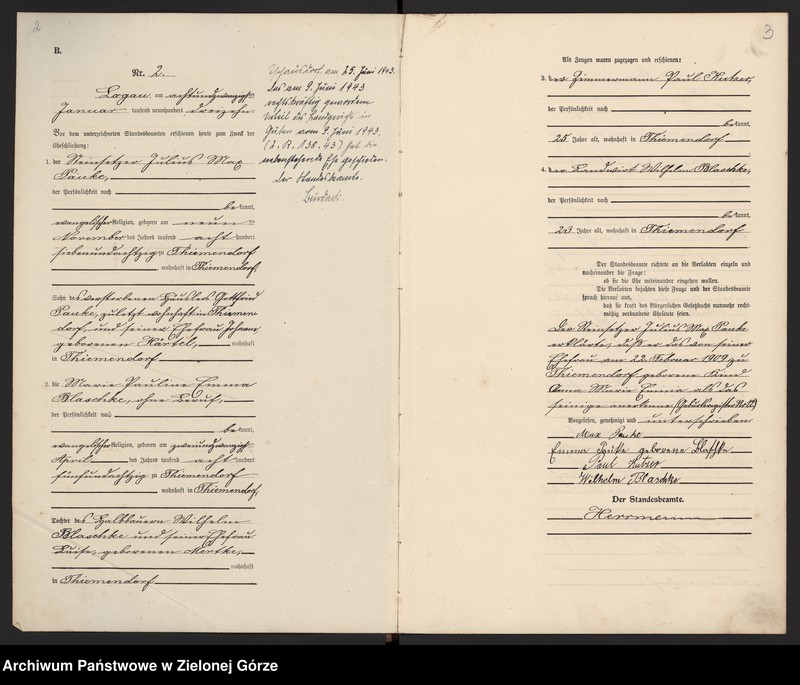 2
B.
Nr. 2.
Logau am achtundzwanzigsten
Januar tausend neunhundert dreizehn
Vor dem unterzeichneten Standesbeamten erschienen heute zum Zweck der
Eheschließung:
1. der Steinsetzer Julius Max
Pauke,
der Persönlichkeit nach
bekannt,
evangelischer Religion, geboren am neun
November des Jahres tausend acht hundert
siebenundachtzig zu Thiemendorf
, wohnhaft in Thiemendorf,
Sohn des verstorbenen Häuslers Gottfried
Pauke, zuletzt wohnhaft in Thiemen-
dorf und seiner Ehefrau Johanne
geborenen Härtel, wohnhaft
in Thiemendorf
2. die Marie Pauline Emma
Blaschke, ohne Beruf,
der Persönlichkeit nach
bekannt,
evangelischer Religion, geboren am zweiundzwanzigsten
April des Jahres tausend acht hundert
fünfundachtzig zu Thiemendorf
, wohnhaft in Thiemendorf,
Tochter des Halbbauern Wilhelm
Blaschke und seiner Ehefrau
Luise, geborenen Mertke,
wohnhaft
in Thiemendorf
am 25. Juni 1943.
Das am 9. Juni 1943
rechtskräftig gewordene
Urteil des Landgerichts in
Guben vom 9. Juni 1943
(2. R. 138.43) hat die
nebenstehende Ehe geschieden.
Der Standesbeamte.
3
Als Zeugen waren zugezogen und erschienen:
3. der Zimmermann Paul
der Persönlichkeit nach
bekannt,
25 Jahre alt, wohnhaft in Thiemendorf
4. der Landwirt Wilhelm Blaschke,
der Persönlichkeit nach
bekannt,
23 Jahre alt, wohnhaft in Thiemendorf
Der Standesbeamte richtete an die Verlobten einzeln und
nacheinander die Frage:
ob sie die Ehe miteinander eingehen wollen.
Die Verlobten bejahten diese Frage und der Standesbeamte
sprach hierauf aus,
daß sie kraft des Bürgerlichen Gesetzbuchs nunmehr recht-
mäßig verbundene Eheleute seien.
Der Steinsetzer Julius Max Pauke
erklärte, daß er das von seiner
Ehefrau am 22. Februar 1909 zu
Thiemendorf geborene Kind
Anna Marie Emma als das
seinige anerkenne. (Geburtsregister No 22)
Vorgelesen, genehmigt und unterschrieben
Max Pauke
Emma Pauke geborene Blaschke
Paul
Wilhelm Blaschke
Der Standesbeamte.
Herrmann
Archiwum Państwowe w Zielonej Górze